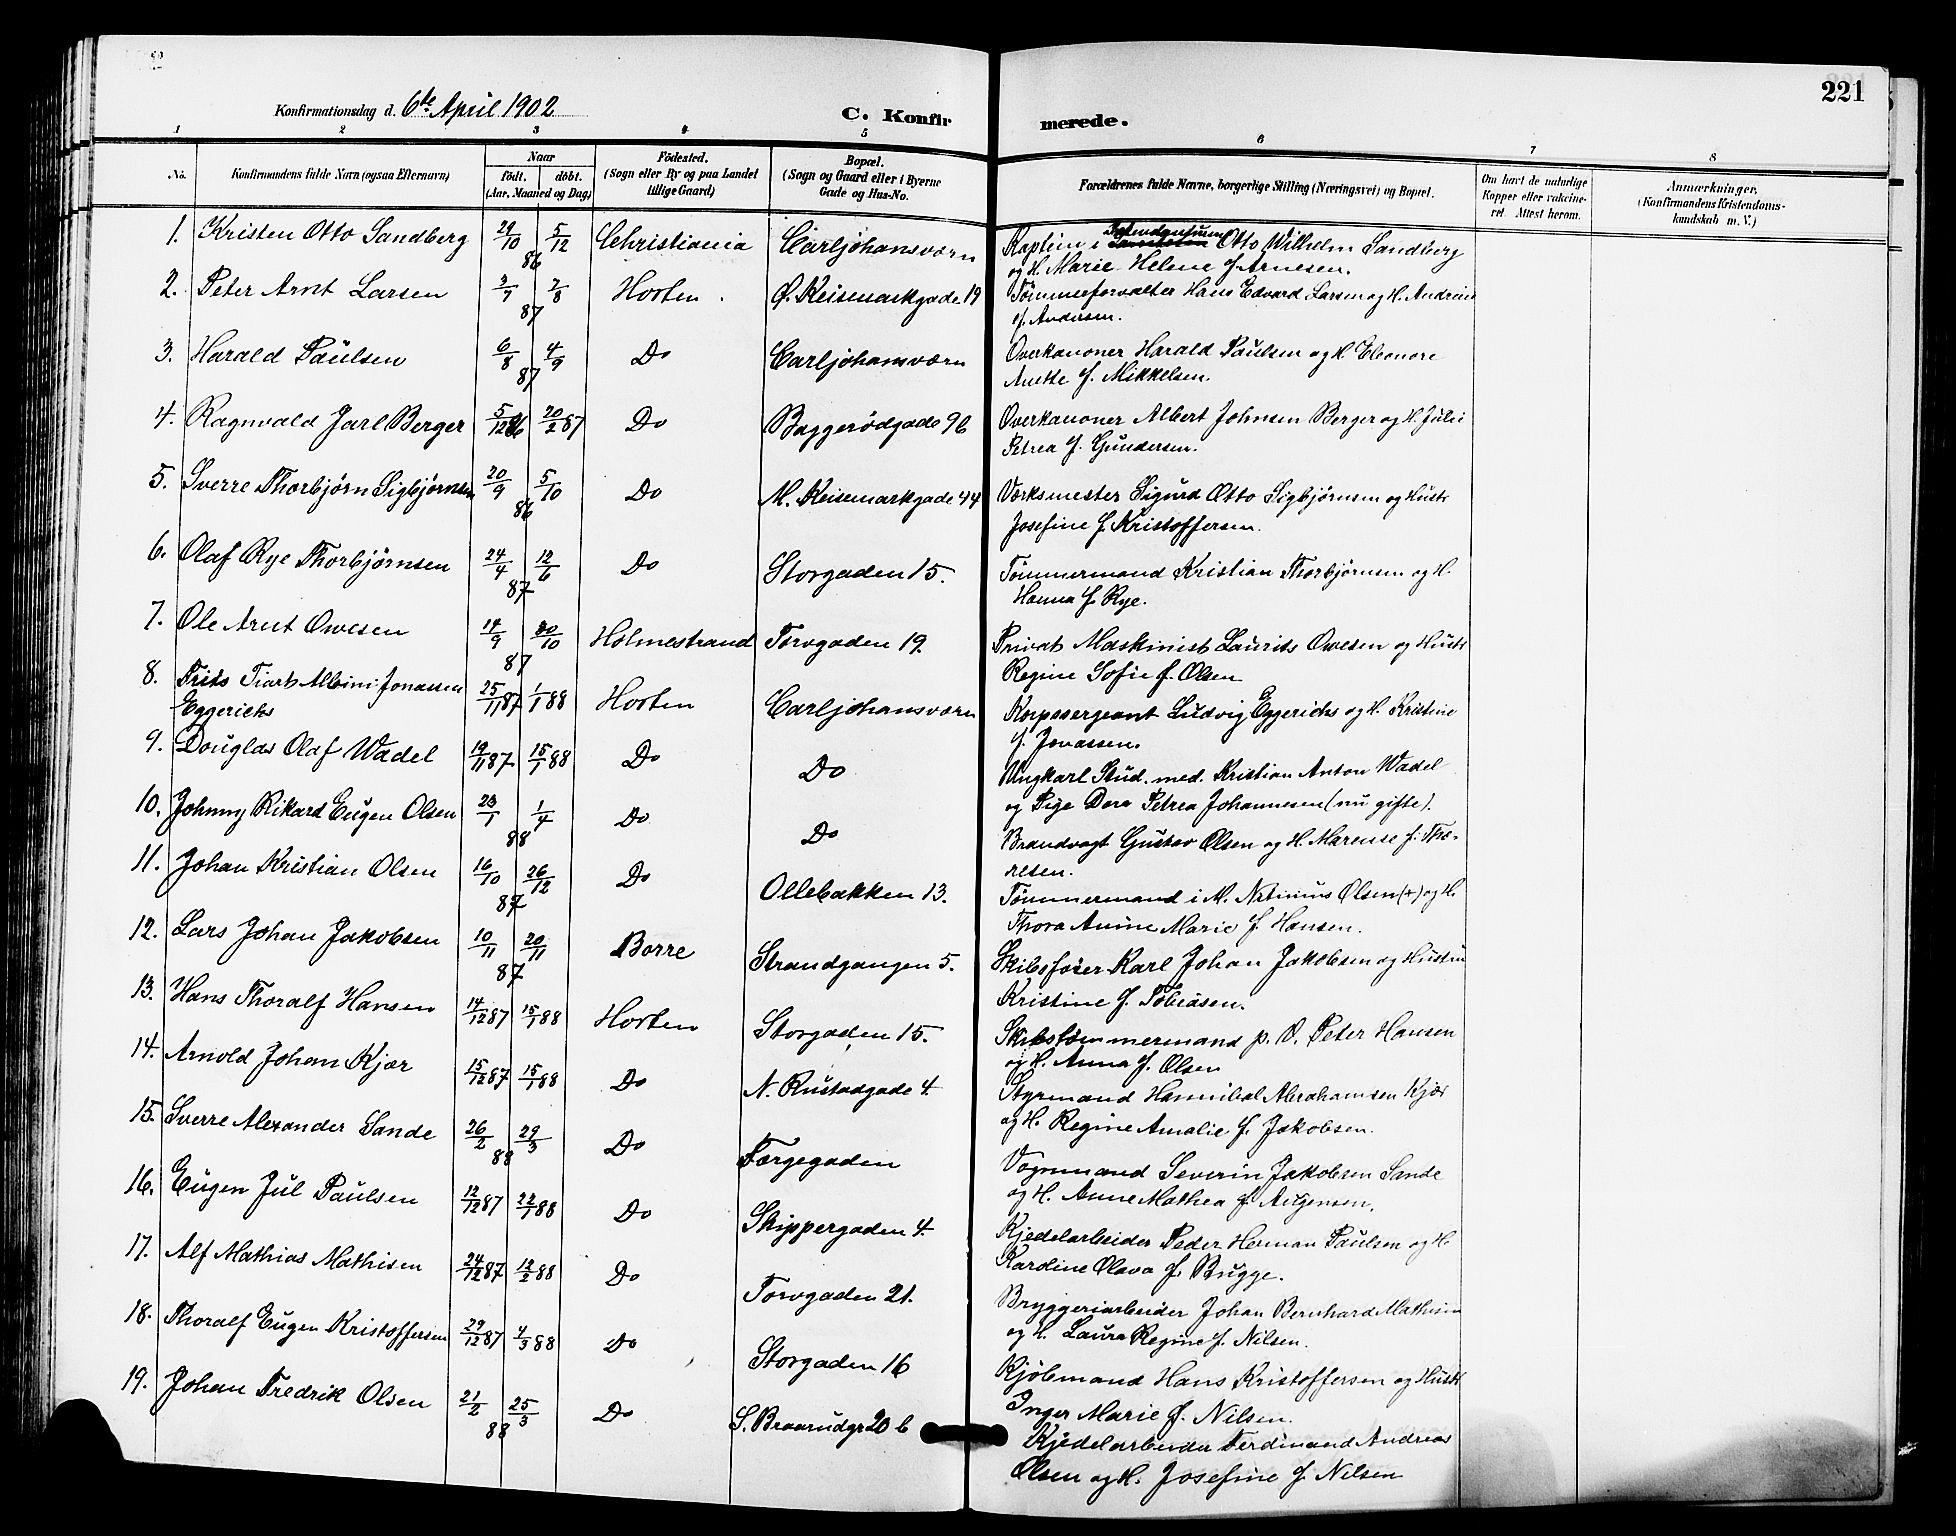 221
Konfirmationsdag d. 6te April 1902
C. Konfirmerede.
1 2 3 4 5 6 7 8
No. Konfirmandens fulde Navn (ogsaa Efternavn) Naar födt. döbt. (Aar, Maaned og Dag) Födested. (Sogn eller By og paa Landet tillige Gaard) Bopæl. (Sogn og Gaard eller i Byerne Gade og Hus-No. Forældrenes fulde Navne, borgerlige Stilling (Næringsvei) og Bopæl. Om havt de naturlige Kopper eller vaccineret. Attest herom. Anmærkninger, (Konfirmandens Kristendomskundskab m. V.)
1. Kristen Otto Sandberg 29/10 5/12 86 Christiania Carljohansværn Kaptein i Otto Wilhelm Sandberg
og H. Marie Helene f. Arnesen.
2. Peter Arnt Larsen 3/7 7/8 87 Horten. Ø. Keisemarkgade 19 Tømmerforvalter Hans Edvard Larsen og H. Andrine
f. Andersen.
3. Harald Paulsen 6/8 4/9 87 Do Carljohansværn Overkanoner Harald Paulsen og H. Eleonore
Anette f. Mikkelsen.
4. Ragnvald Jarl Berger 5/12 86 20/2 87 Do Baggerødgade 9b Overkanoner Albert Johnsen Berger og H. Julie
Petrea f. Gundersen.
5. Sverre Thorbjørn Sigbjørnsen 20/9 5/10 86 Do M. Keisemarkgade 44 Værksmester Sigurd Otto Sigbjørnsen og Hustr
Josefine f. Kristoffersen.
6. Olaf Rye Thorbjørnsen 24/4 12/6 87 Do Storgaden 15. Tømmermand Kristian Thorbjørnsen og H.
Hanna f. Rye.
7. Ole Arnt Owesen 14/9 30/10 87 Holmestrand Torvgaden 19. Privat Maskinist Laurits Owesen og Hustr
Regine Sofie f. Olsen
8. Frits Tiart Albini Jonassen
Eggerichs 25/11 87 1/1 88 Horten Carljohansværn Korpssergeant Ludvig Eggerichs og H. Kristine
f. Jonassen.
9. Douglas Olaf Wadel 19/11 87 15/1 88 Do Do Ungkarl Stud. med. Kristian Anton Wadel
og Pige Dora Petrea Johannesen (nu gifte).
10. Johnny Rikard Eugen Olsen 23/1 1/4 88 Do Do Brandvagt Gustav Olsen og H. Marense f. Tho-
resen.
11. Johan Kristian Olsen 16/10 26/12 87 Do Ollebakken 13. Tømmermand i M. Nitinius Olsen (+) og H.
Thora Anine Marie f. Hansen.
12. Lars Johan Jakobsen 10/11 20/11 87 Borre Strandgangen 5. Skibsfører Karl Johan Jakobsen og Hustru
Kristine f. Tobiasen.
13. Hans Thoralf Hansen 14/12 87 15/1 88 Horten Storgaden 15. Skibstømmermand p. V. Peter Hansen
og H. Anna f. Olsen
14. Arnold Johan Kjær 15/12 87 15/1 88 Do N. Rustadgade 4. Styrmand Hannibal Abrahamsen Kjær
og H. Regine Amalie f. Jakobsen.
15. Sverre Alexander Sande 26/2 29/3 88 Do Færgegaden Vognmand Severin Jakobsen Sande
og H. Anne Mathea f. Avgensen.
16. Eugen Jul Paulsen 12/12 87 22/1 88 Do Skippergaden 4. Kjedelarbeider Peder Herman Paulsen og H.
Kardine Olava f. Brügge.
17. Alf Mathias Mathisen 24/12 87 12/2 88 Do Torvgaden 21. Bryggeriarbeider Johan Bernhard Mathisen
og H. Laura Regine f. Nilsen.
18. Thoralf Eugen Kristoffersen 29/12 87 4/3 88 Do Storgaden 16 Kjøbmand Hans Kristoffersen og Hustr
Inger Marie f. Nilsen.
19. Johan Fredrik Olsen 21/2 25/3 88 Do S. Braarudgr 20 b Kjedelarbeider Ferdinand Andreas
Olsen og H. Josefine f. Nilsen